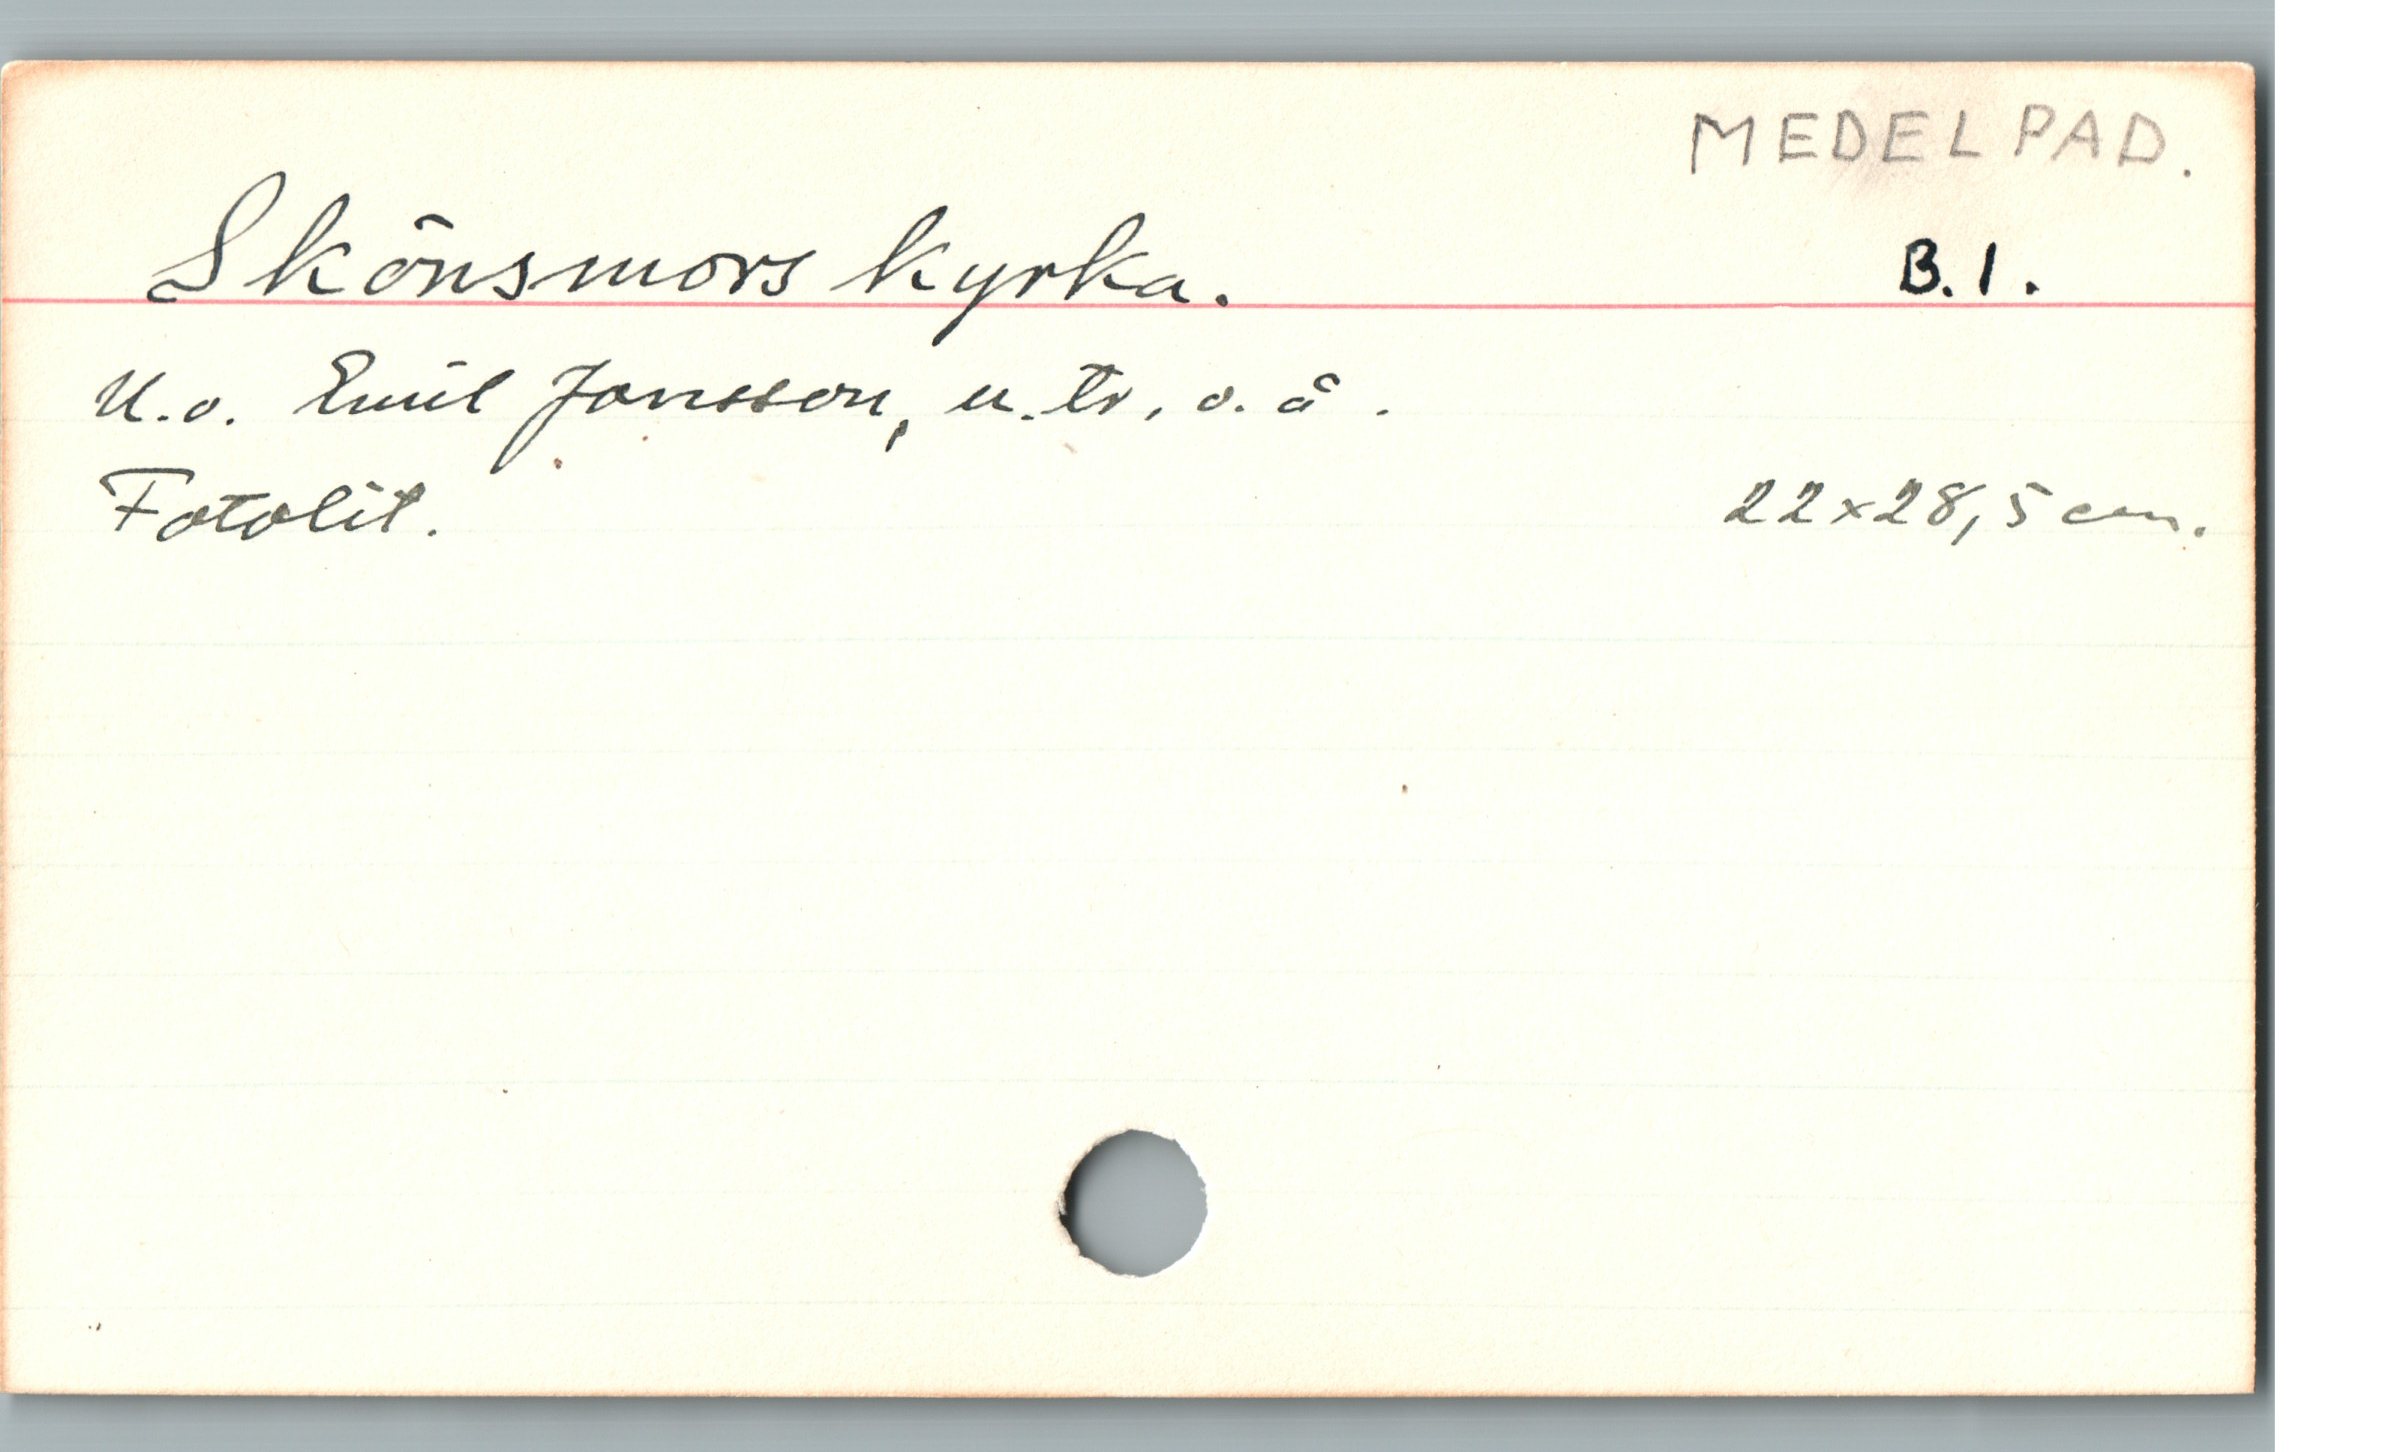 MEDELPAD.
Skönsmors kyrka. B.1.
U.o. Emil Jonsson, u.tr. o. å.
Fotolit. 22x28,5 cm.